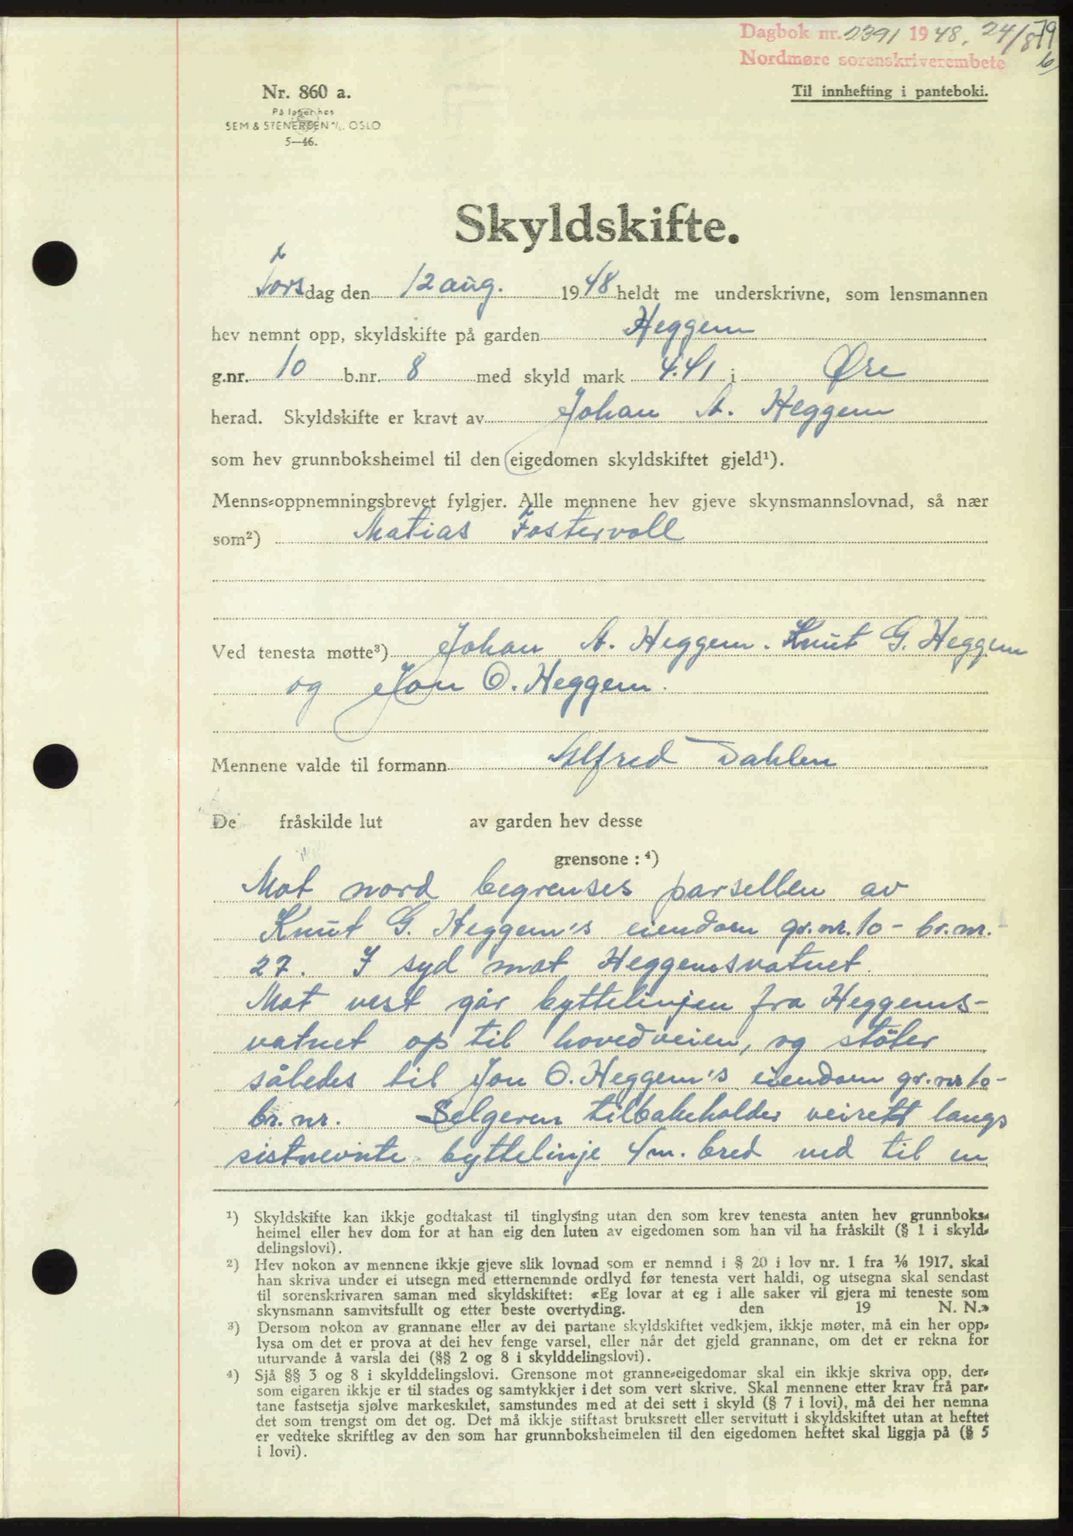 Dagbok nr. 2391 1948. 24/8 79
Nordmøre sorenskriverembete
Nr. 860 a.
På lager hos
SEM & STENERSEN A/S. OSLO
5—46.
Til innhefting i panteboki.
Skyldskifte.
Torsdag den 12 aug. 1948 heldt me underskrivne, som lensmannen
hev nemnt opp, skyldskifte på garden Heggem
g.nr. 10 b.nr. 8 med skyld mark 4.41 i Øre
herad. Skyldskifte er kravt av Johan A. Heggem
som hev grunnboksheimel til den eigedomen skyldskiftet gjeld¹).
Menns-oppnemningsbrevet fylgjer. Alle mennene hev gjeve skynsmannslovnad, så nær
som²) Matias Fostervoll
Ved tenesta møtte³) Johan A. Heggem. Knut G. Heggem
og Jon O. Heggem.
Mennene valde til formann Alfred Dahlen
De fråskilde lut av garden hev desse
grensone: ⁴)
Mot nord begrenses parsellen av
Knut G. Heggem's eiendom gr.nr. 10 - br.nr.
27. I syd mot Heggemsvatnet.
Mot vest går byttelinjen fra Heggems-
vatnet op til hovedveien, og støter
således til Jon O. Heggem's eiendom gr.nr 10-
br.nr. Selgeren tilbakeholder veirett langs
sistnevnte byttelinje 4 m. bred ved til en
¹) Skyldskifte kan ikkje godtakast til tinglysing utan den som krev tenesta anten hev grunnboks-
heimel eller hev dom for at han eig den luten av eigedomen som han vil ha fråskilt (§ 1 i skyld-
delingslovi).
²) Hev nokon av mennene ikkje gjeve slik lovnad som er nemnd i § 20 i lov nr. 1 fra 1/6 1917, skal
han skriva under ei utsegn med etternemnde ordlyd før tenesta vert haldi, og utsegna skal sendast
til sorenskrivaren saman med skyldskiftet: «Eg lovar at eg i alle saker vil gjera mi teneste som
skynsmann samvitsfullt og etter beste overtyding. den 19 N. N.»
³) Dersom nokon av grannane eller av dei partane skyldskiftet vedkjem, ikkje møter, må ein her opp-
lysa om det er prova at dei hev fenge varsel, eller når det gjeld grannane, om det er rekna for
uturvande å varsla dei (§§ 2 og 8 i skylddelingslovi).
⁴) Sjå §§ 3 og 8 i skylddelingslovi. Grensone mot granne-eigedomar skal ein ikkje skriva opp, der-
som eigaren ikkje er til stades og samtykkjer i det som vert skrive. Skal mennene etter krav frå par-
tane fastsetja sjølve markeskilet, samstundes med at dei sett i skyld (§ 7 i lovi), må dei her nemna
det som trengst om det og. Det må ikkje stiftast bruksrett eller servitutt i skyldskiftet utan at heftet
er vedteke skriftleg av den som har grunnboksheimelen til den eigedomen heftet skal liggja på (§ 5
i lovi).